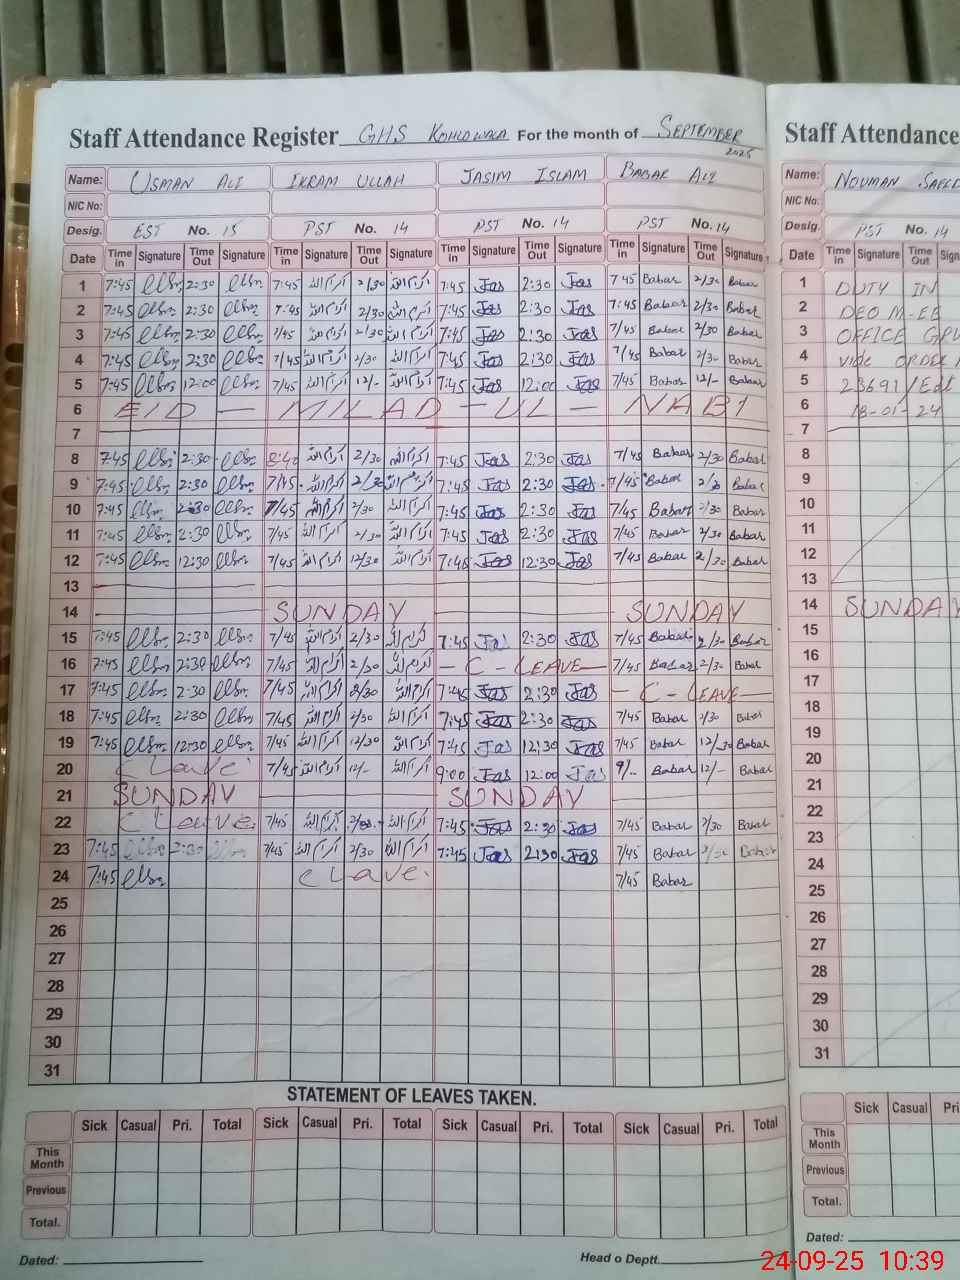 Staff Attendance Register GHS KOHLOWALA For the month of SEPTEMBER 2025
Name: USMAN ALI IKRAM ULLAH JASIM ISLAM BABAR ALI
NIC No:
Desig. EST No. 15 PST No. 14 PST No. 14 PST No. 14
Date Time in Signature Time Out Signature Time in Signature Time Out Signature Time in Signature Time Out Signature Time in Signature Time Out Signature
1 7:45 2:30 7:45 اکرام اللہ 2/30 اکرام اللہ 7:45 Jas 2:30 Jas 7 45 Babar 2/30 Babar
2 7:45 2:30 7:45 اکرام اللہ 2/30 اکرام اللہ 7:45 Jas 2:30 Jas 7:45 Babar 2/30 Babar
3 7:45 2:30 7/45 اکرام اللہ 2/30 اکرام اللہ 7:45 Jas 2:30 Jas 7/45 Babar 2/30 Babar
4 7:45 2:30 7/45 اکرام اللہ 2/30 اکرام اللہ 7:45 Jas 2:30 Jas 7/45 Babar 2/30 Babar
5 7:45 12:00 7/45 اکرام اللہ 12/- اکرام اللہ 7:45 Jas 12:00 Jas 7/45 Babar 12/- Babar
6 EID - MILAD - UL - NABI
7
8 7:45 2:30 8:40 اکرام اللہ 2/30 اکرام اللہ 7:45 Jas 2:30 Jas 7/45 Babar 2/30 Babar
9 7:45 2:30 7/45 اکرام اللہ 2/30 اکرام اللہ 7:45 Jas 2:30 Jas 7/45 Babar 2/30 Babar
10 7:45 2:30 7/45 اکرام اللہ 2/30 اکرام اللہ 7:45 Jas 2:30 Jas 7/45 Babar 2/30 Babar
11 7:45 2:30 7/45 اکرام اللہ 2/30 اکرام اللہ 7:45 Jas 2:30 Jas 7/45 Babar 2/30 Babar
12 7:45 12:30 7/45 اکرام اللہ 12/30 اکرام اللہ 7:45 Jas 12:30 Jas 7/45 Babar 2/30 Babar
13
14 SUNDAY SUNDAY
15 7:45 2:30 7/45 اکرام اللہ 2/30 اکرام اللہ 7:45 Jas 2:30 Jas 7/45 Babar 2/30 Babar
16 7:45 2:30 7/45 اکرام اللہ 2/30 اکرام اللہ - C - LEAVE - 7/45 Babar 2/30 Babar
17 7:45 2:30 7/45 اکرام اللہ 2/30 اکرام اللہ 7:45 Jas 2:30 Jas - C - LEAVE -
18 7:45 2:30 7/45 اکرام اللہ 2/30 اکرام اللہ 7:45 Jas 2:30 Jas 7/45 Babar 2/30 Babar
19 7:45 12:30 7/45 اکرام اللہ 12/30 اکرام اللہ 7:45 Jas 12:30 Jas 7/45 Babar 12/30 Babar
20 C Leave 7/45 اکرام اللہ 12/- اکرام اللہ 9:00 Jas 12:00 Jas 9/.. Babar 12/- Babar
21 SUNDAY SUNDAY
22 C Leave 7/45 اکرام اللہ 2/30 اکرام اللہ 7:45 Jas 2:30 Jas 7/45 Babar 2/30 Babar
23 7:45 2:30 7/45 اکرام اللہ 2/30 اکرام اللہ 7:45 Jas 2:30 Jas 7/45 Babar 2/30 Babar
24 7:45 C Leave. 7/45 Babar
25
26
27
28
29
30
31
STATEMENT OF LEAVES TAKEN.
Sick Casual Pri. Total Sick Casual Pri. Total Sick Casual Pri. Total Sick Casual Pri. Total
This Month
Previous
Total.
Dated: Head o Deptt.
Staff Attendance
Name: NOUMAN SAEED
NIC No:
Desig. PST No. 14
Date Time in Signature Time Out
1 DUTY IN
2 DEO M-EE
3 OFFICE
4 vide ORDER
5 23691/
6 18-01-24
7
8
9
10
11
12
13
14 SUNDAY
15
16
17
18
19
20
21
22
23
24
25
26
27
28
29
30
31
Sick Casual Pri
This Month
Previous
Total.
Dated:
24-09-25 10:39